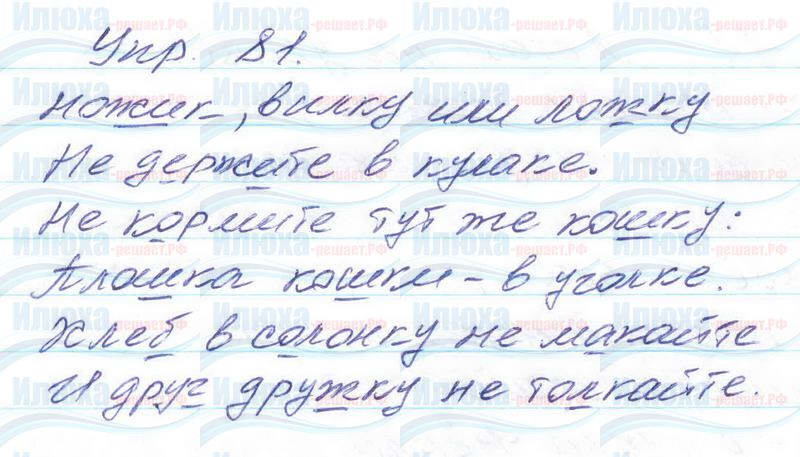 Упр. 81.
Ножик, вилку или ложку
Не держите в кулаке.
Не кормите тут же кошку:
Плошка кошки – в уголке.
Хлеб в солонку не макайте
И друг дружку не толкайте.